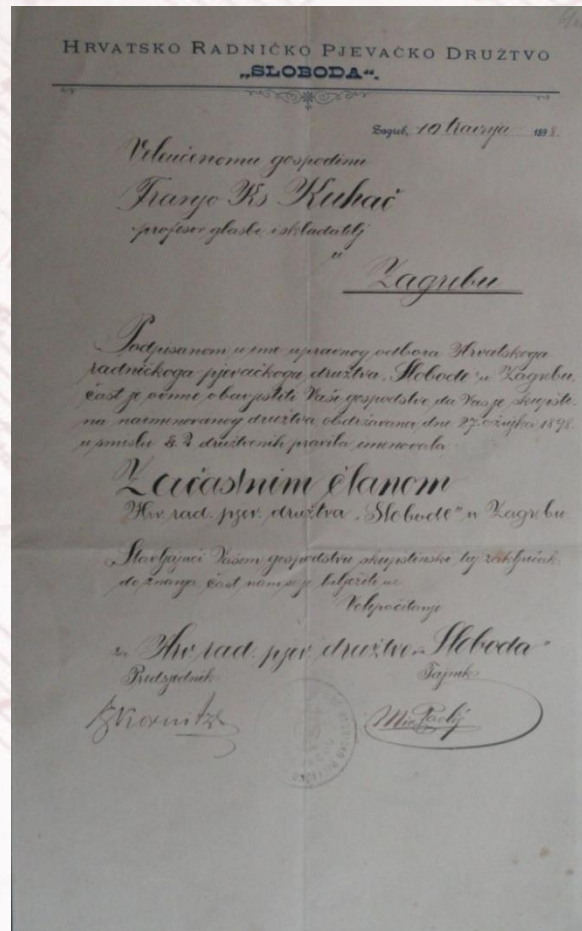 HRVATSKO RADNIČKO PJEVAČKO DRUŽTVO
„SLOBODA“.
Zagreb, 10 travnja 1898.
Veleučenomu gospodinu
Franjo Ks Kuhač
profesor glasbe i skladatelj
u
Zagrebu
Podpisanom u ime upravnog odbora Hrvatskoga
radničkoga pjevačkoga družtva „Slobode“ u Zagrebu,
čast je ovime obavjestiti Vaše gospodstvo da Vas je skupšti-
na naimenovanog družtva, obdržavana dne 27. ožujka 1898.
u smislu § 2 družtvenih pravila imenovala
Začastnim članom
Hrv. rad. pjev. družtva „Slobode“ u Zagrebu.
Stavljajući Vašem gospodstvu skupštinski taj zaključak
do znanja, čast nam se je bilježiti uz
Veleпоčitanje
za Hrv. rad. pjev. družtvo „Sloboda“
Predsjednik Tajnik